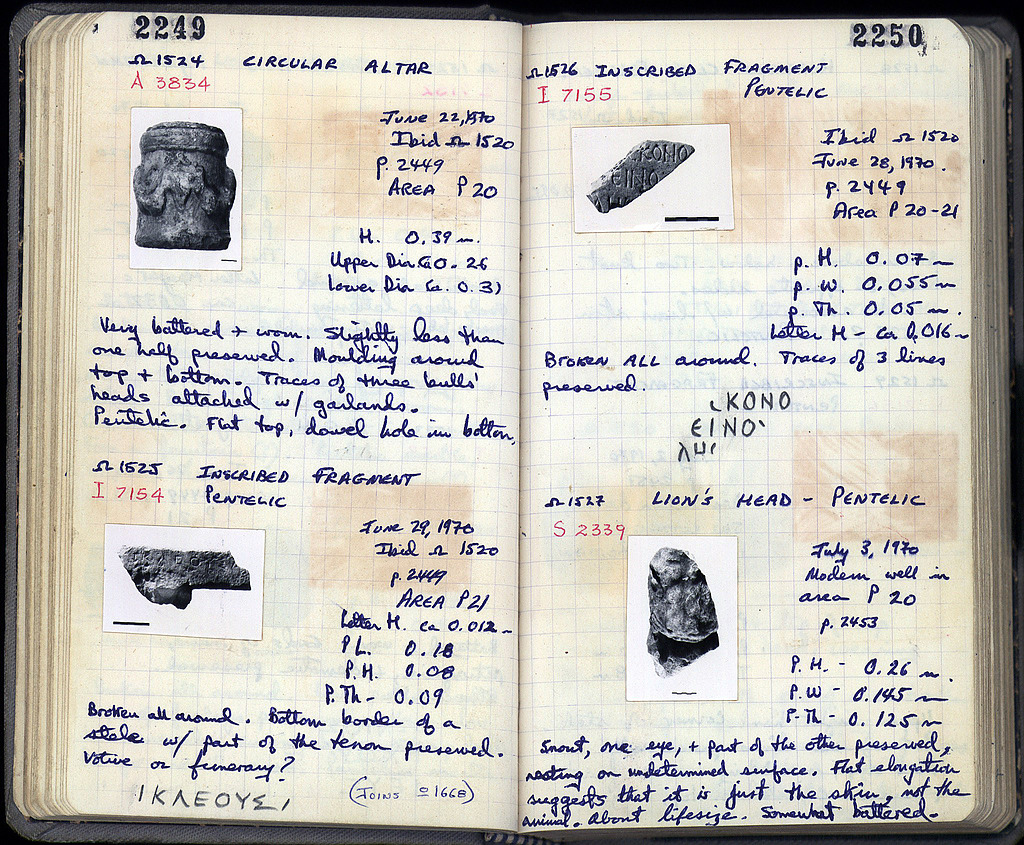 2249
Ω 1524 CIRCULAR ALTAR
A 3834
June 22, 1970
Ibid Ω 1520
p. 2449
AREA P 20
H. 0.39 m.
Upper Dia Ca 0.26
Lower Dia Ca. 0.31
Very battered + worn. Slightly less than
one half preserved. Moulding around
top + bottom. Traces of three bulls'
heads attached w/ garlands.
Pentelic. Flat top, dowel hole in bottom.
Ω 1525 INSCRIBED FRAGMENT
I 7154 PENTELIC
June 29, 1970
Ibid Ω 1520
p. 2449
AREA P 21
Letter H. ca 0.012 m
P L. 0.18
P.H. 0.08
P.Th - 0.09
Broken all around. Bottom border of a
stele w/ part of the tenon preserved.
Votive or funerary?
ΙΚΛΕΟΥΣΙ
(JOINS Ω 1668)
2250
Ω 1526 INSCRIBED FRAGMENT
I 7155 PENTELIC
ΚΟΝΟ
ΕΙΝΟ
Ibid Ω 1520
June 28, 1970.
p. 2449
Area P 20-21
p. H. 0.07 m
p. W. 0.055 m
p. Th. 0.05 m
Letter H - ca 0.016 m
BROKEN ALL around. Traces of 3 lines
preserved.
ΚΟΝΟ
ΕΙΝΟ
Ω 1527 LION'S HEAD - PENTELIC
S 2339
July 3, 1970
Modern well in
area P 20
p. 2453
P. H. - 0.26 m.
P. W - 0.145 m
P-Th - 0.125 m
Snout, one eye, + part of the other preserved,
resting on undetermined surface. Flat elongation
suggests that it is just the skin, not the
animal. About lifesize. Somewhat battered.